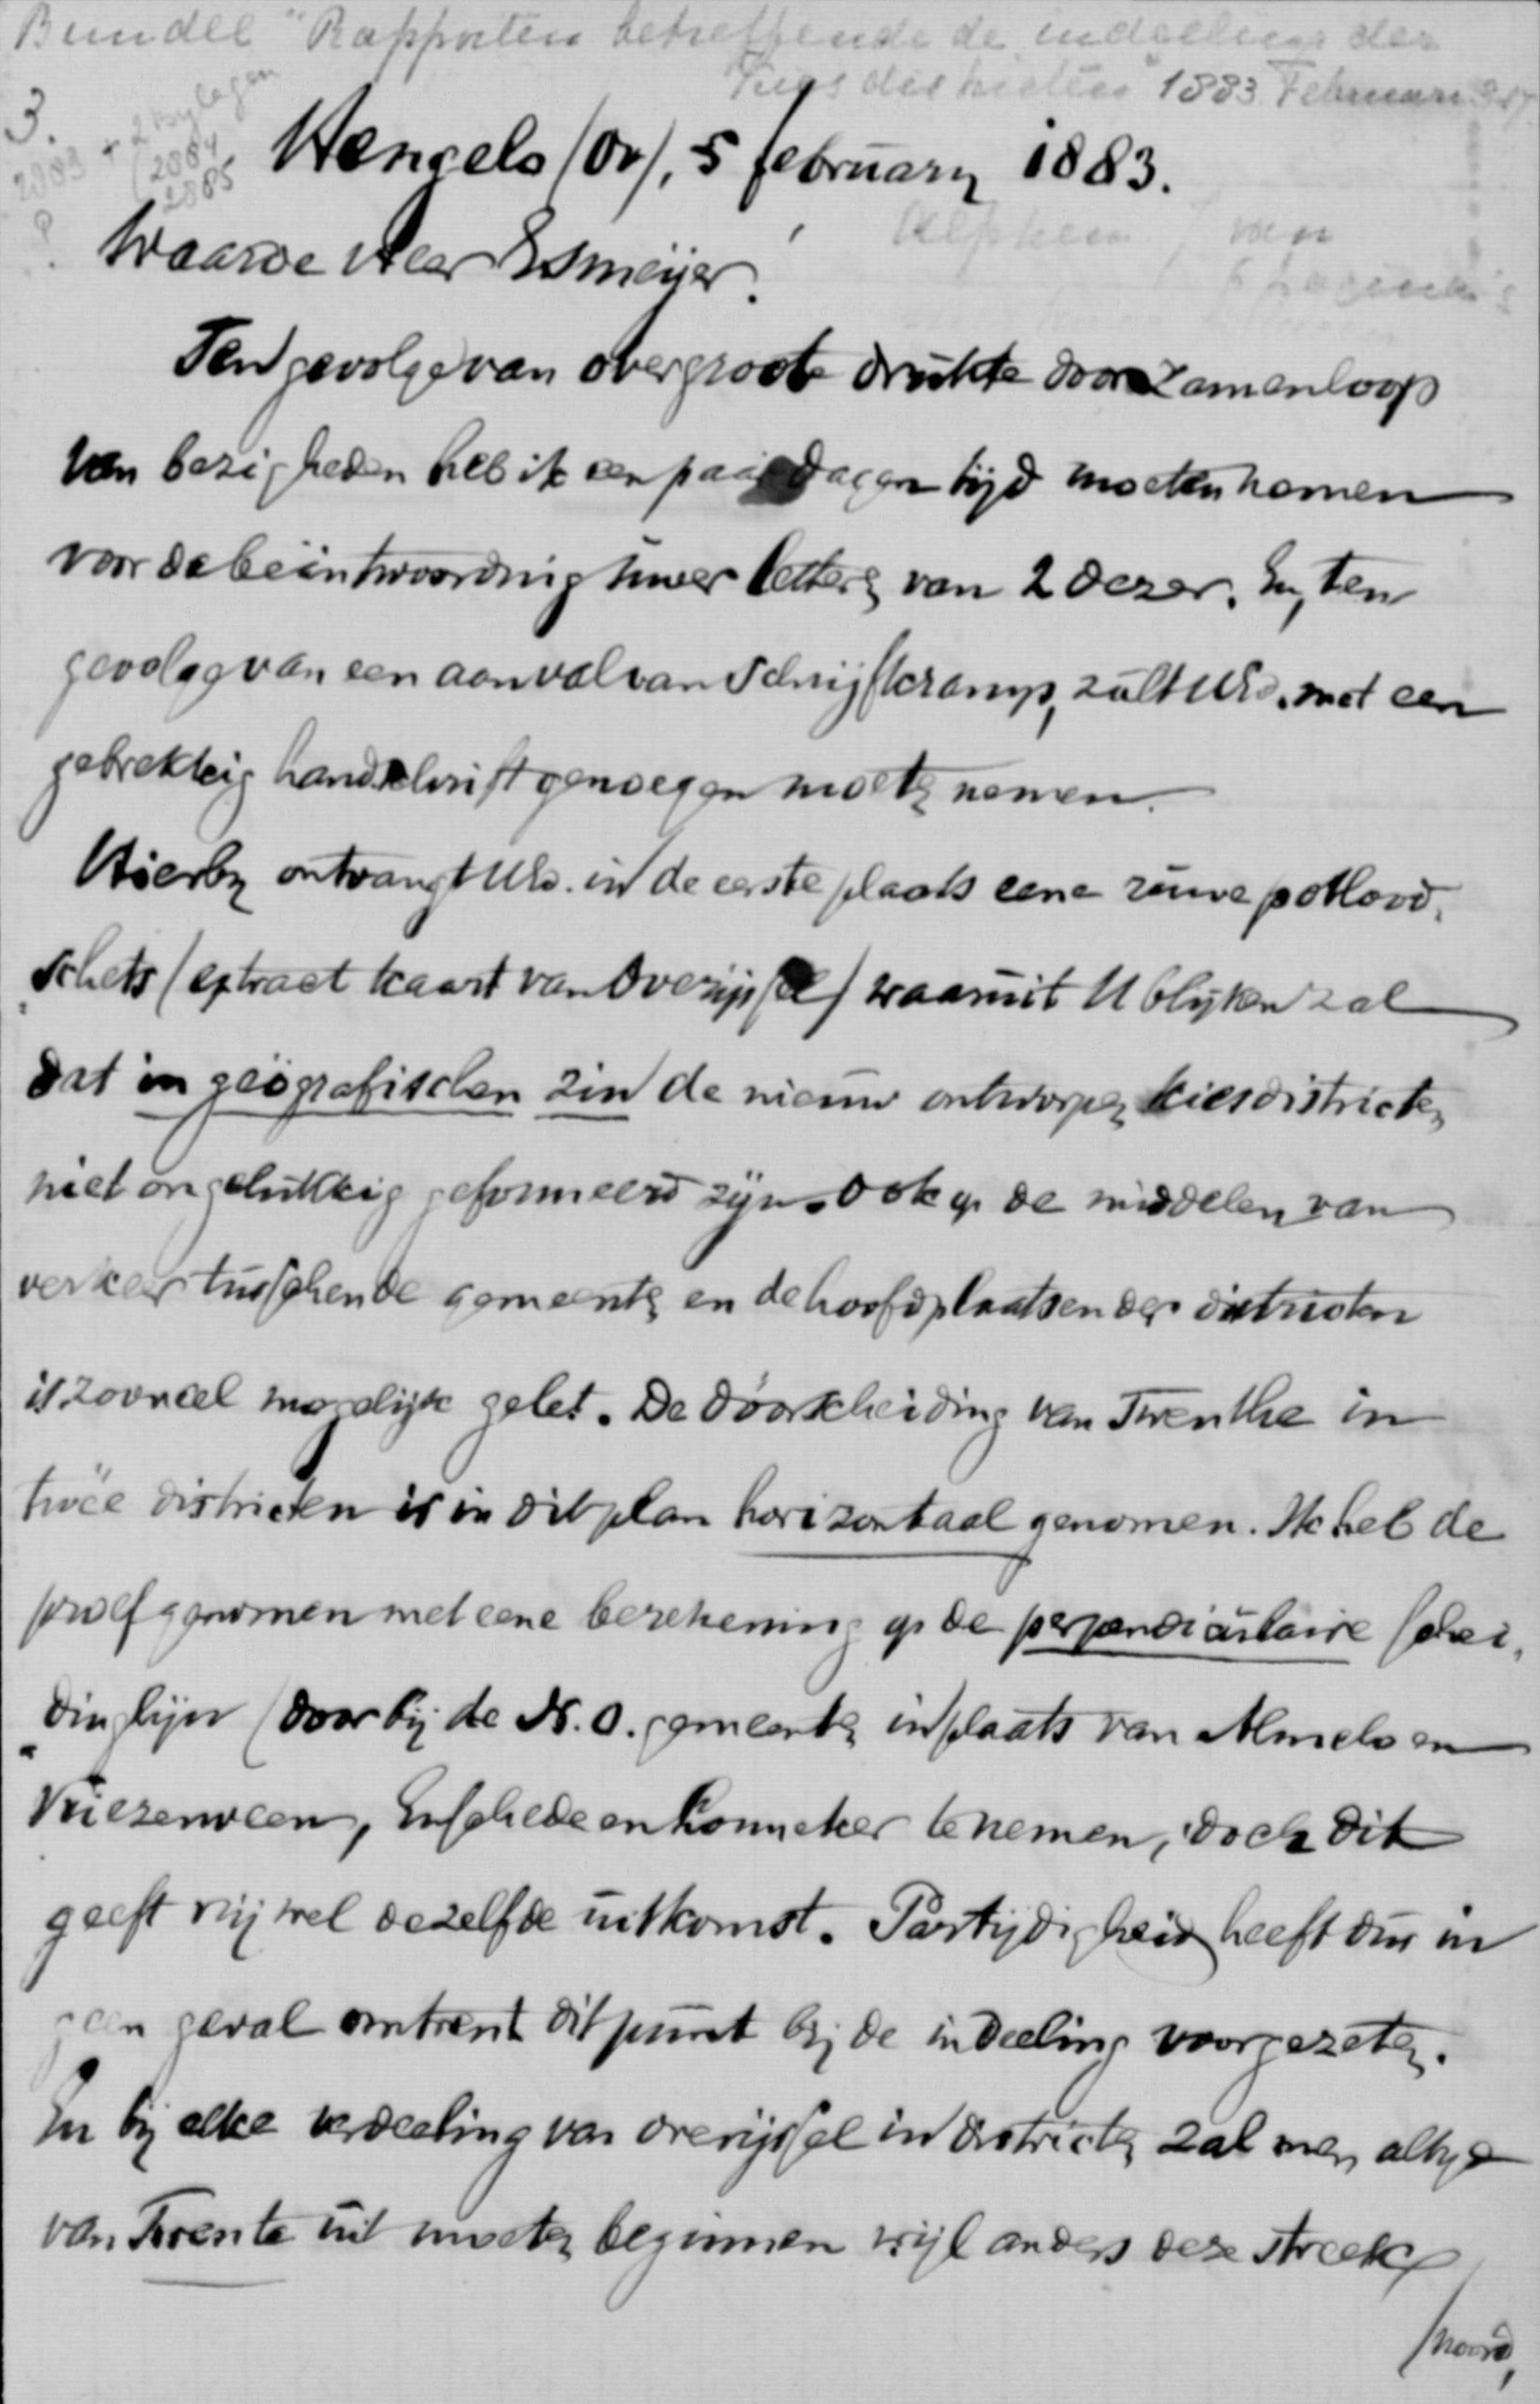 Bundel "Rapporten betreffende de indeeling der
Kiesdistricten" 1883 Februari
3.
+ 2 bylagen
2883
(2884
2885
?
Hengelo (Ov), 5 february 1883.
Alphen van
6 pagina's
Waarde Heer Esmeijer.
Ten gevolge van overgroote drukte door zamenloop
van bezigheden heb ik een paar dagen tijd moeten nemen
voor de beäntwoording uwer letteren van 2 dezer. En, ten
gevolge van een aanval van schrijfkramp, zult UEd. met een
gebrekkig handschrift genoegen moeten nemen.
Hierby ontvangt UEd. in de eerste plaats eene ruwe potlood-
schets (extract kaart van Overijssel) waaruit U blijken zal
dat in geögrafischen zin de nieuw ontworpen kiesdistricten
niet ongelukkig geformeerd zijn. Ook op de middelen van
verkeer tusschen de gemeenten en de hoofdplaatsen der districten
is zooveel mogelijk gelet. De dóórscheiding van Twenthe in
twëe districten is in dit plan horizontaal genomen. Ik heb de
proef genomen met eene berekening op de perpendiculaire schei-
dinglijn (door bij de N.O. gemeenten in plaats van Almelo en
Vriezenveen, Enschede en Lonneker te nemen, doch dit
geeft vrij wel dezelfde uitkomst. Partijdigheid heeft dus in
geen geval omtrent dit punt bij de indeeling voorgezeten.
En bij elke verdeeling van Overijssel in districten zal men altyd
van Twente uit moeten beginnen wijl anders deze streek
/noord,